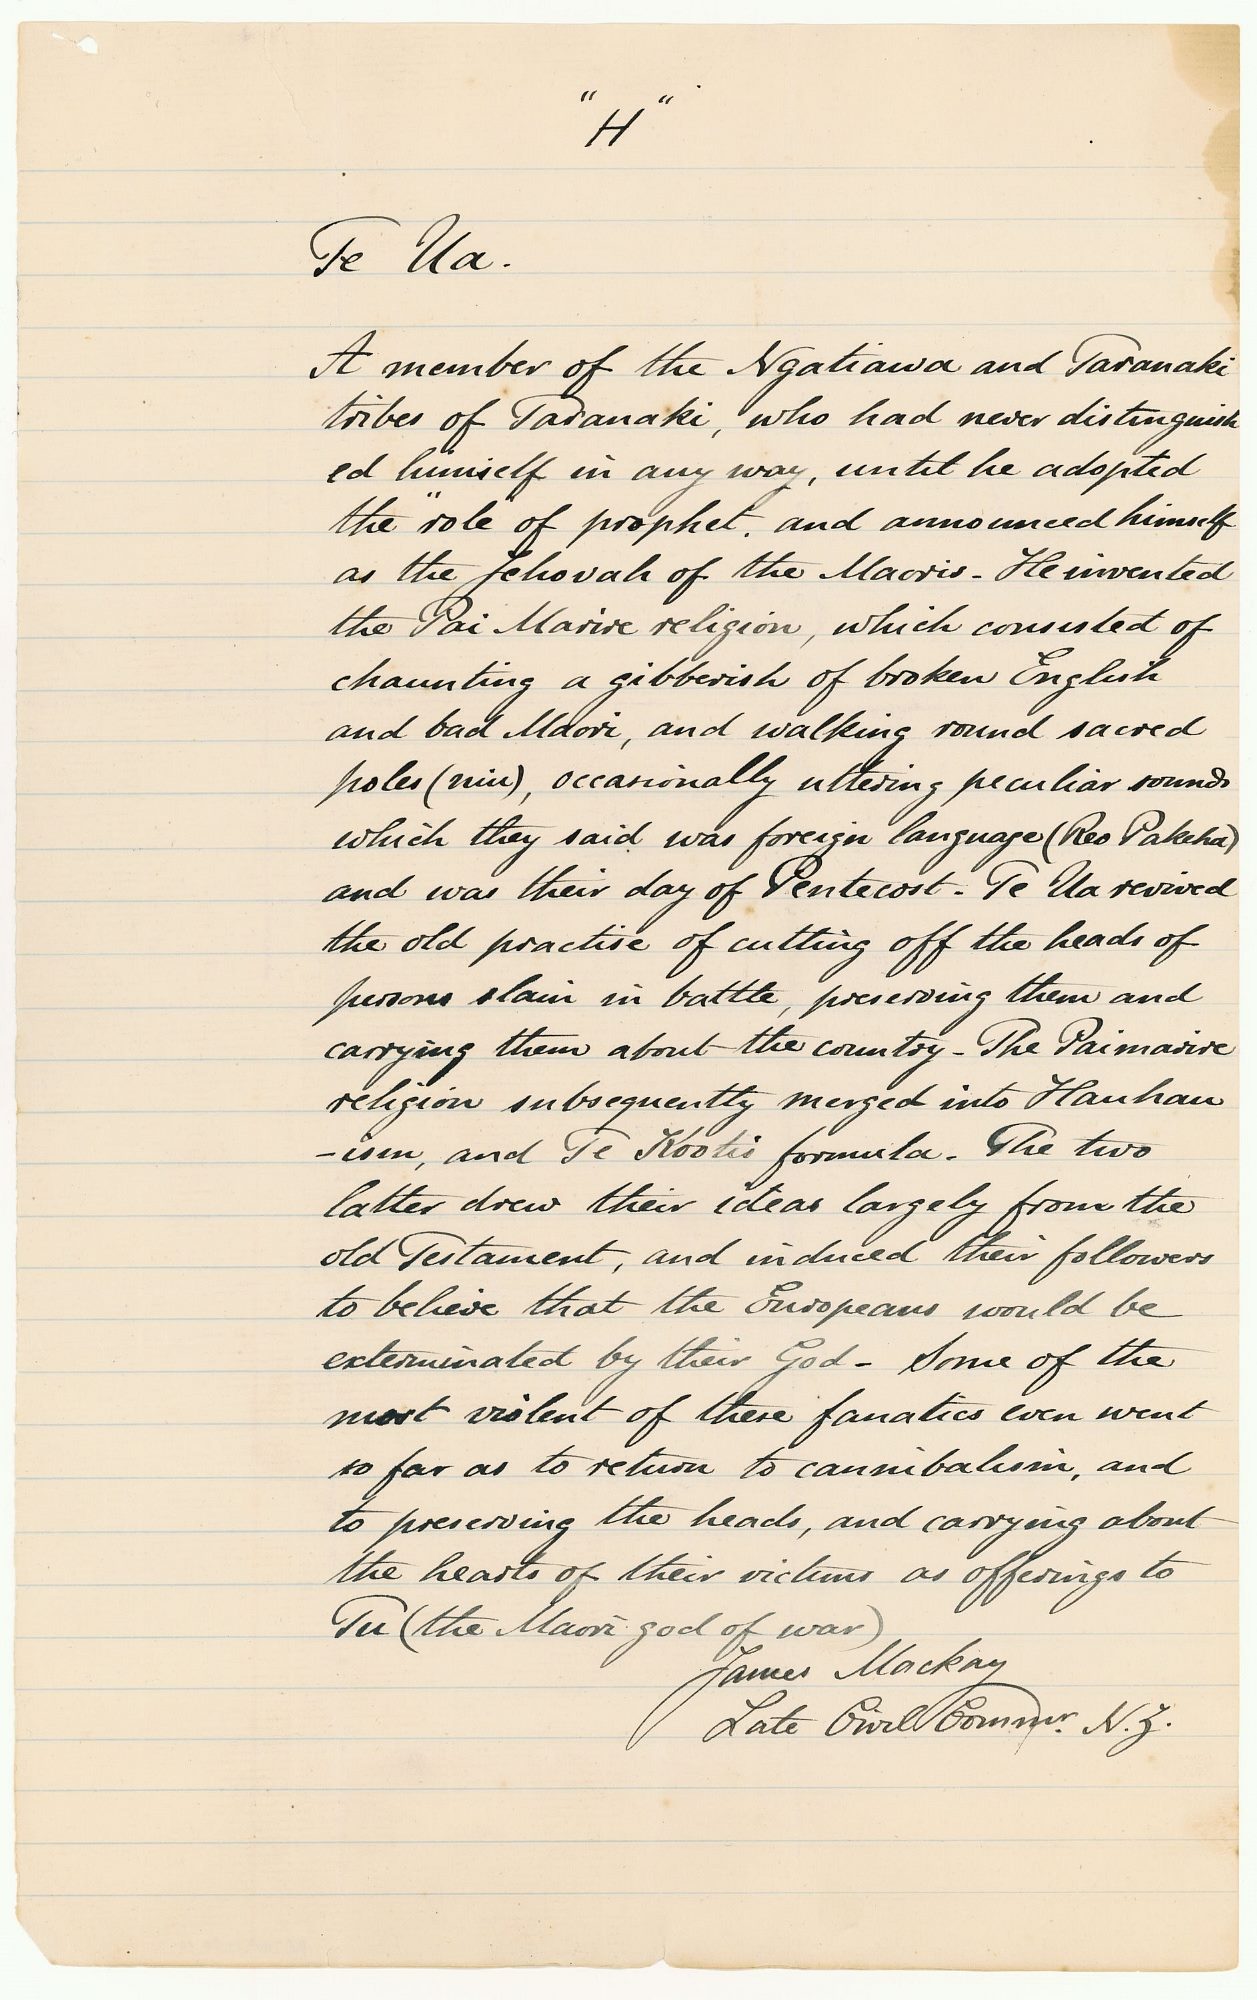 "H"
Te Ua.
A member of the Ngatiawa and Taranaki
tribes of Taranaki, who had never distinguish
ed himself in any way, until he adopted
the "role" of prophet, and announced himself
as the Jehovah of the Maoris - He invented
the Pai Marire religion, which consisted of
chaunting a gibberish of broken English
and bad Maori, and walking round sacred
poles (niu), occasionally uttering peculiar sounds
which they said was foreign language (Reo Pakeha)
and was their day of Pentecost - Te Ua revived
the old practise of cutting off the heads of
persons slain in battle, preserving them and
carrying them about the country - The Paimarire
religion subsequently merged into Hauhau
-ism, and Te Kooti's formula - The two
latter drew their ideas largely from the
old Testament, and induced their followers
to believe that the Europeans would be
exterminated by their God - Some of the
most violent of these fanatics even went
so far as to return to cannibalism, and
to preserving the heads, and carrying about
the hearts of their victims as offerings to
Tu (the Maori god of war)
James Mackay
Late Civil Commr. N.Z.